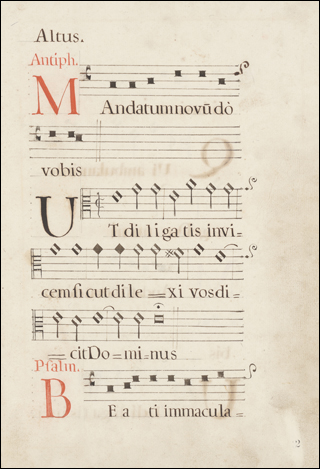 Altus.
Antiph.
MAndatum novū dò
vobis
UT di li ga tis invi=
cem si cut di le = xi vos di=
= cit Do = mi = nus
Psalm.
BE a ti immacula=
2